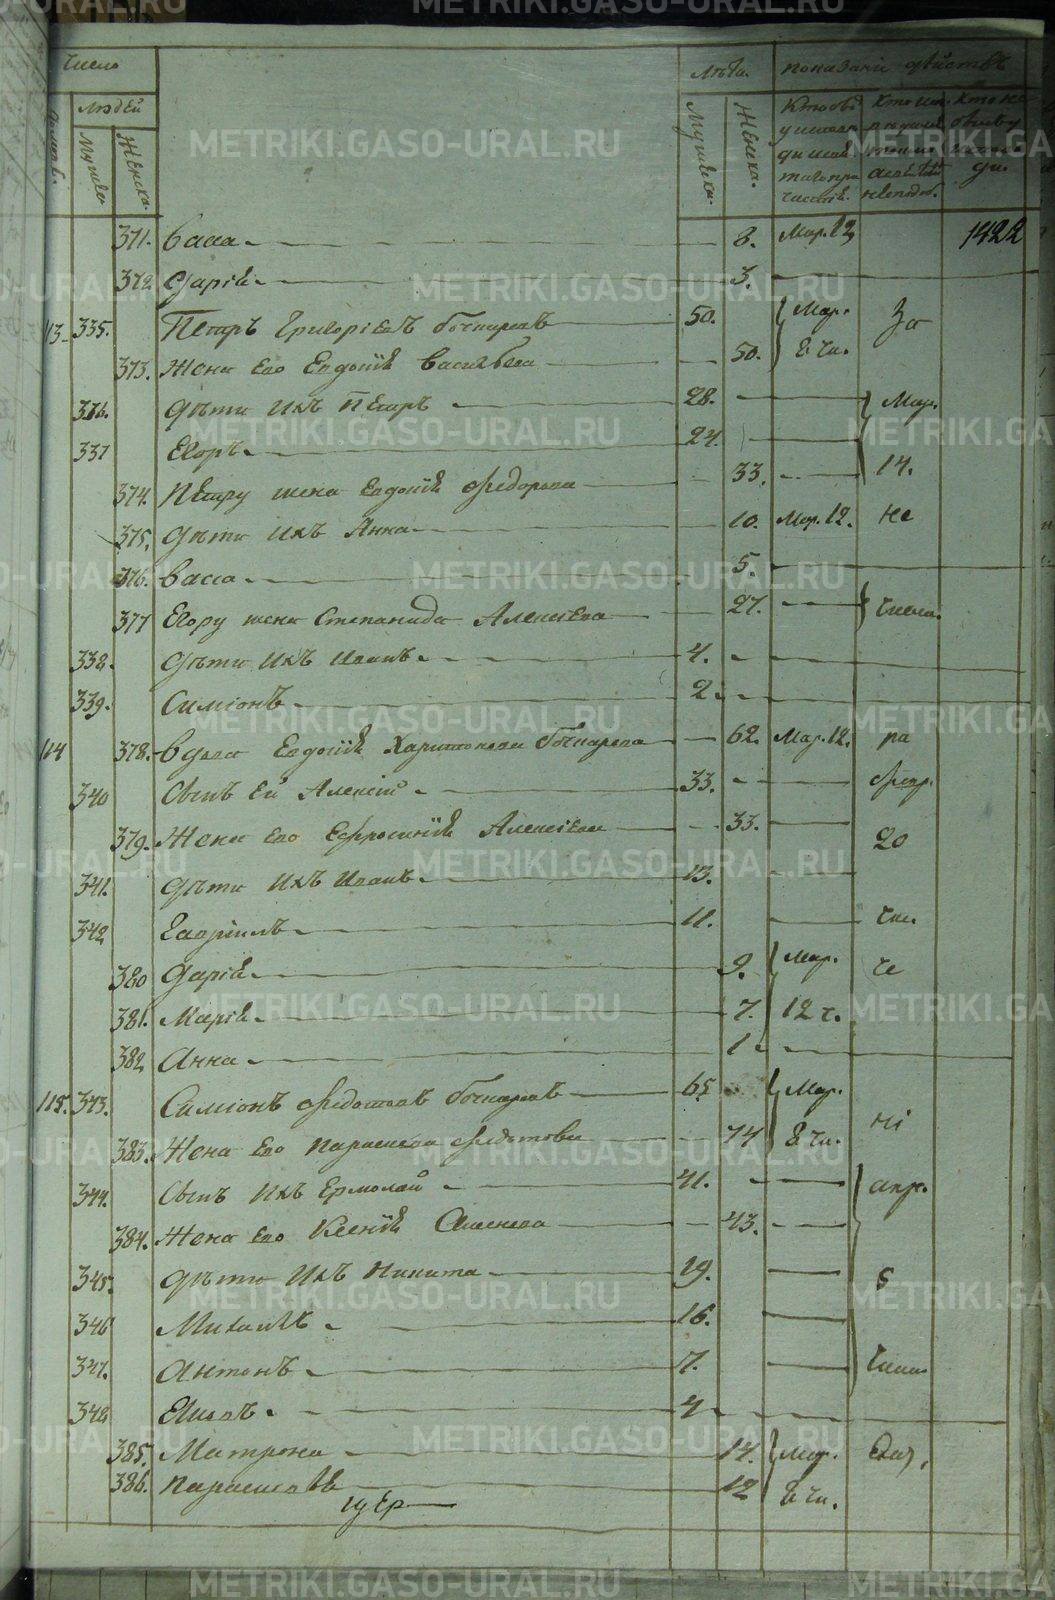 METRIKI.GASO-URAL.RU
Число
людей
Мужеска
Женска.
Лѣта.
Мужеска.
Женска.
показанiи дѣйствъ
1422
371. Васса 8. Мар. 12
372 Дарiя 3.
113. 335. Петръ Григорiевъ Бочкаревъ 50. Мар. За
373. Жена его Евдокiя Васильева 50. 8 чи.
336. дѣти ихъ Петръ 28. Мар.
337 Егоръ 24.
14.
374. Петру жена Евдокiя Федорова 33.
375. дѣти ихъ Анна 10. Мар. 12. не
376. Васса 5.
377 Егору жена Степанида Алексiева 27. числа.
338. дѣти ихъ Иванъ 4.
339. Симiонъ 2
114 378. Вдова Евдокiя Харитонова Бочкарева 62. Мар. 12. ра
340 Сынъ ей Алексiй 33. февр.
379. Жена его Ефросинiя Алексiева 33. 20
341. дѣти ихъ Иванъ 13.
342 Гаврiилъ 11. чи.
380 Дарiя 9. Мар. че
381. Марiя 7. 12 ч.
382 Анна 1
115. 343. Симiонъ Федотовъ Бочкаревъ 65 Мар. нi
383. Жена его Параскева Федотова 74 8 чи.
344. Сынъ ихъ Ермолай 41. апр.
384. Жена его Ксенiя 43.
345. дѣти ихъ Никита 19. 5
346 Михаилъ 16.
347. Антонъ 7. числа
348 4
385. Матрона 14. Мар.
386. Парасковiя 12 8 чи.
iуЕр